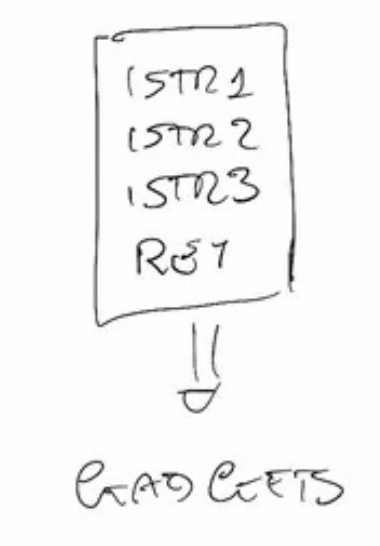 ISTR1
ISTR2
ISTR3
RET
GADGETS